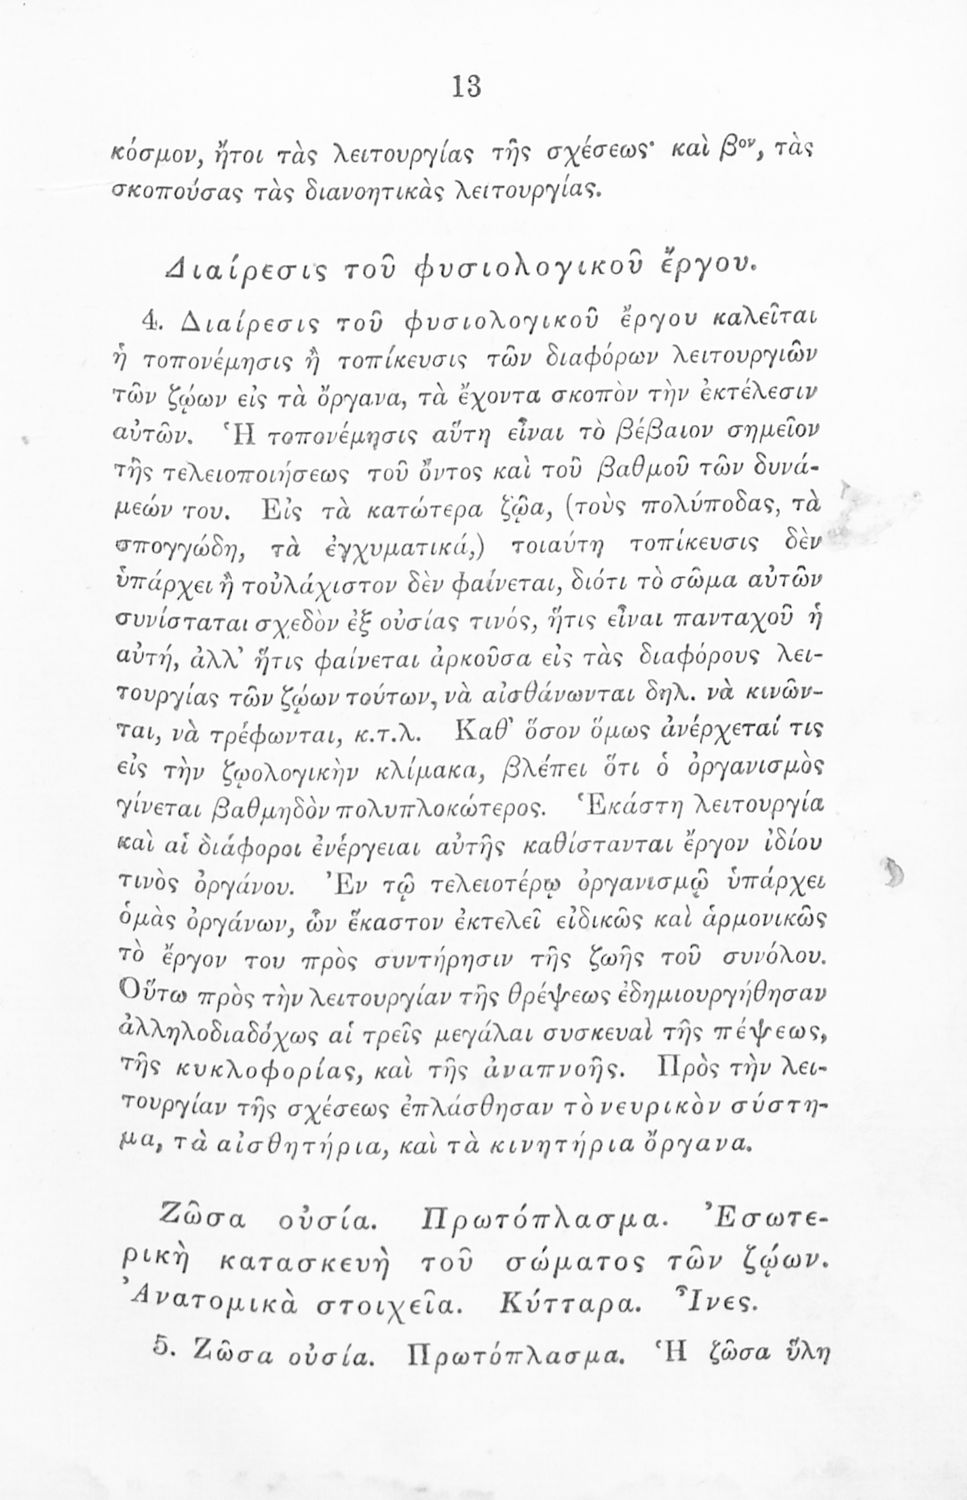 13
κόσμον, ἤτοι τὰς λειτουργίας τῆς σχέσεως· καὶ βον, τὰς
σκοπούσας τὰς διανοητικὰς λειτουργίας.
Διαίρεσις τοῦ φυσιολογικοῦ ἔργου.
4. Διαίρεσις τοῦ φυσιολογικοῦ ἔργου καλεῖται
ἡ τοπονέμησις ἢ τοπίκευσις τῶν διαφόρων λειτουργιῶν
τῶν ζῴων εἰς τὰ ὄργανα, τὰ ἔχοντα σκοπὸν τὴν ἐκτέλεσιν
αὐτῶν. Ἡ τοπονέμησις αὕτη εἶναι τὸ βέβαιον σημεῖον
τῆς τελειοποιήσεως τοῦ ὄντος καὶ τοῦ βαθμοῦ τῶν δυνά-
μεών του. Εἰς τὰ κατώτερα ζῷα, (τοὺς πολύποδας, τὰ
σπογγώδη, τὰ ἐγχυματικά,) τοιαύτη τοπίκευσις δὲν
ὑπάρχει ἢ τοὐλάχιστον δὲν φαίνεται, διότι τὸ σῶμα αὐτῶν
συνίσταται σχεδὸν ἐξ οὐσίας τινός, ἥτις εἶναι πανταχοῦ ἡ
αὐτή, ἀλλ' ἥτις φαίνεται ἀρκοῦσα εἰς τὰς διαφόρους λει-
τουργίας τῶν ζῴων τούτων, νὰ αἰσθάνωνται δηλ. νὰ κινῶν-
ται, νὰ τρέφωνται, κ.τ.λ. Καθ' ὅσον ὅμως ἀνέρχεταί τις
εἰς τὴν ζῳολογικὴν κλίμακα, βλέπει ὅτι ὁ ὀργανισμὸς
γίνεται βαθμηδὸν πολυπλοκώτερος. Ἑκάστη λειτουργία
καὶ αἱ διάφοροι ἐνέργειαι αὐτῆς καθίστανται ἔργον ἰδίου
τινὸς ὀργάνου. Ἐν τῷ τελειοτέρῳ ὀργανισμῷ ὑπάρχει
ὁμὰς ὀργάνων, ὧν ἕκαστον ἐκτελεῖ εἰδικῶς καὶ ἁρμονικῶς
τὸ ἔργον του πρὸς συντήρησιν τῆς ζωῆς τοῦ συνόλου.
Οὕτω πρὸς τὴν λειτουργίαν τῆς θρέψεως ἐδημιουργήθησαν
ἀλληλοδιαδόχως αἱ τρεῖς μεγάλαι συσκευαὶ τῆς πέψεως,
τῆς κυκλοφορίας, καὶ τῆς ἀναπνοῆς. Πρὸς τὴν λει-
τουργίαν τῆς σχέσεως ἐπλάσθησαν τὸ νευρικὸν σύστη-
μα, τὰ αἰσθητήρια, καὶ τὰ κινητήρια ὄργανα.
Ζῶσα οὐσία. Πρωτόπλασμα. Ἐσωτε-
ρικὴ κατασκευὴ τοῦ σώματος τῶν ζῴων.
Ἀνατομικὰ στοιχεῖα. Κύτταρα. Ἶνες.
5. Ζῶσα οὐσία. Πρωτόπλασμα. Ἡ ζῶσα ὕλη